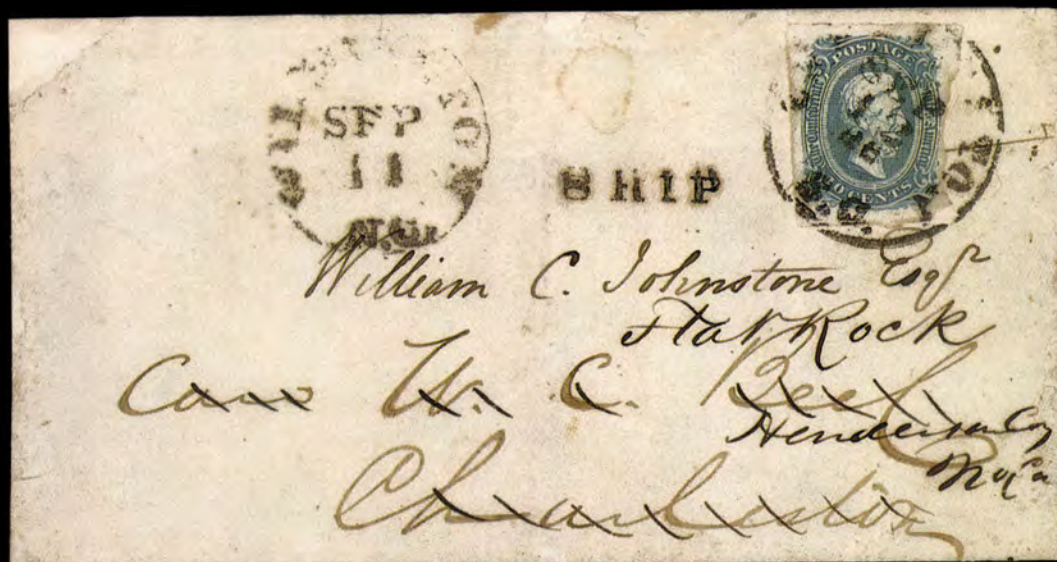 SEP
11
SHIP
POSTAGE
CENTS
William C. Johnstone Esqr
Flat Rock
Care W. C. Bee
Henderson Coy
No Ca
Charleston